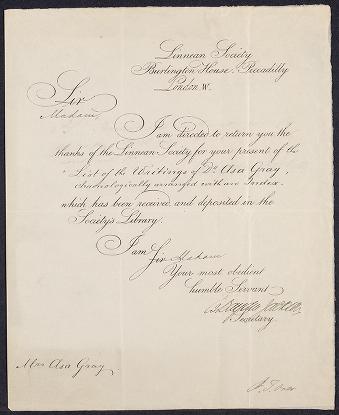 Linnean Society
Burlington House, Piccadilly
London. W.
Sir
Madam,
I am directed to return you the
thanks of the Linnean Society for your present of the
"List of the Writings of Dr. Asa Gray,
chronologically arranged with an Index.
which has been received and deposited in the
Society's Library.
I am Sir Madam
Your most obedient
humble Servant
Secretary.
Mrs Asa Gray